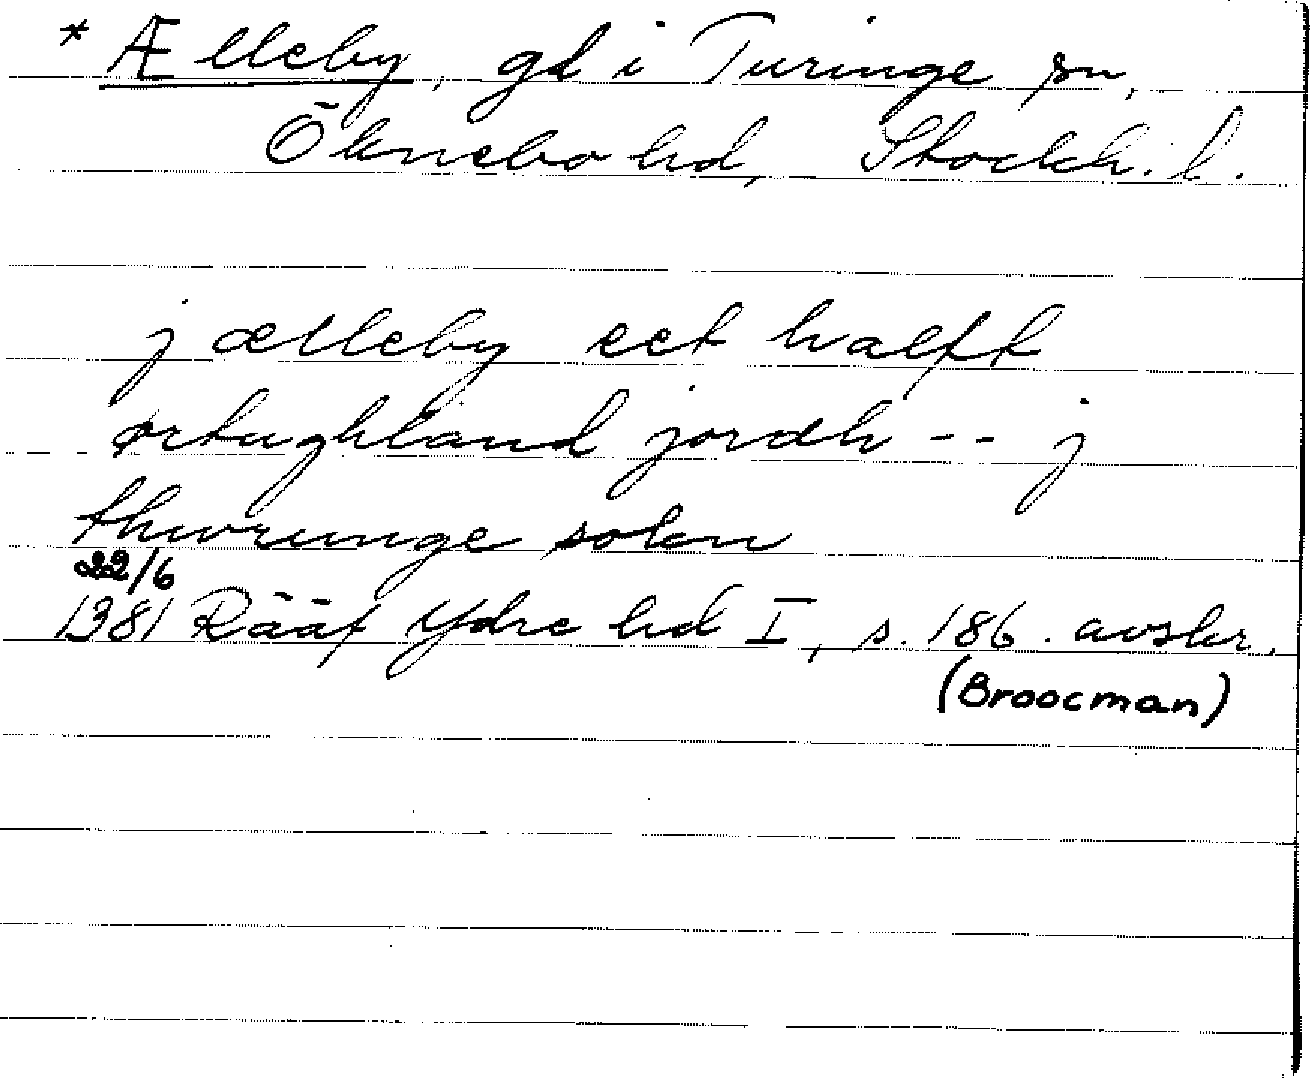 * Ælleby, gd i Turinge sn,
Öknebo hd, Stockh. l.
j ælleby eet halfft
ørtughland jordh -- j
thwrunge sokn
22/6
1381 Rääf Ydre hd I, s. 186. avskr.
(Broocman)